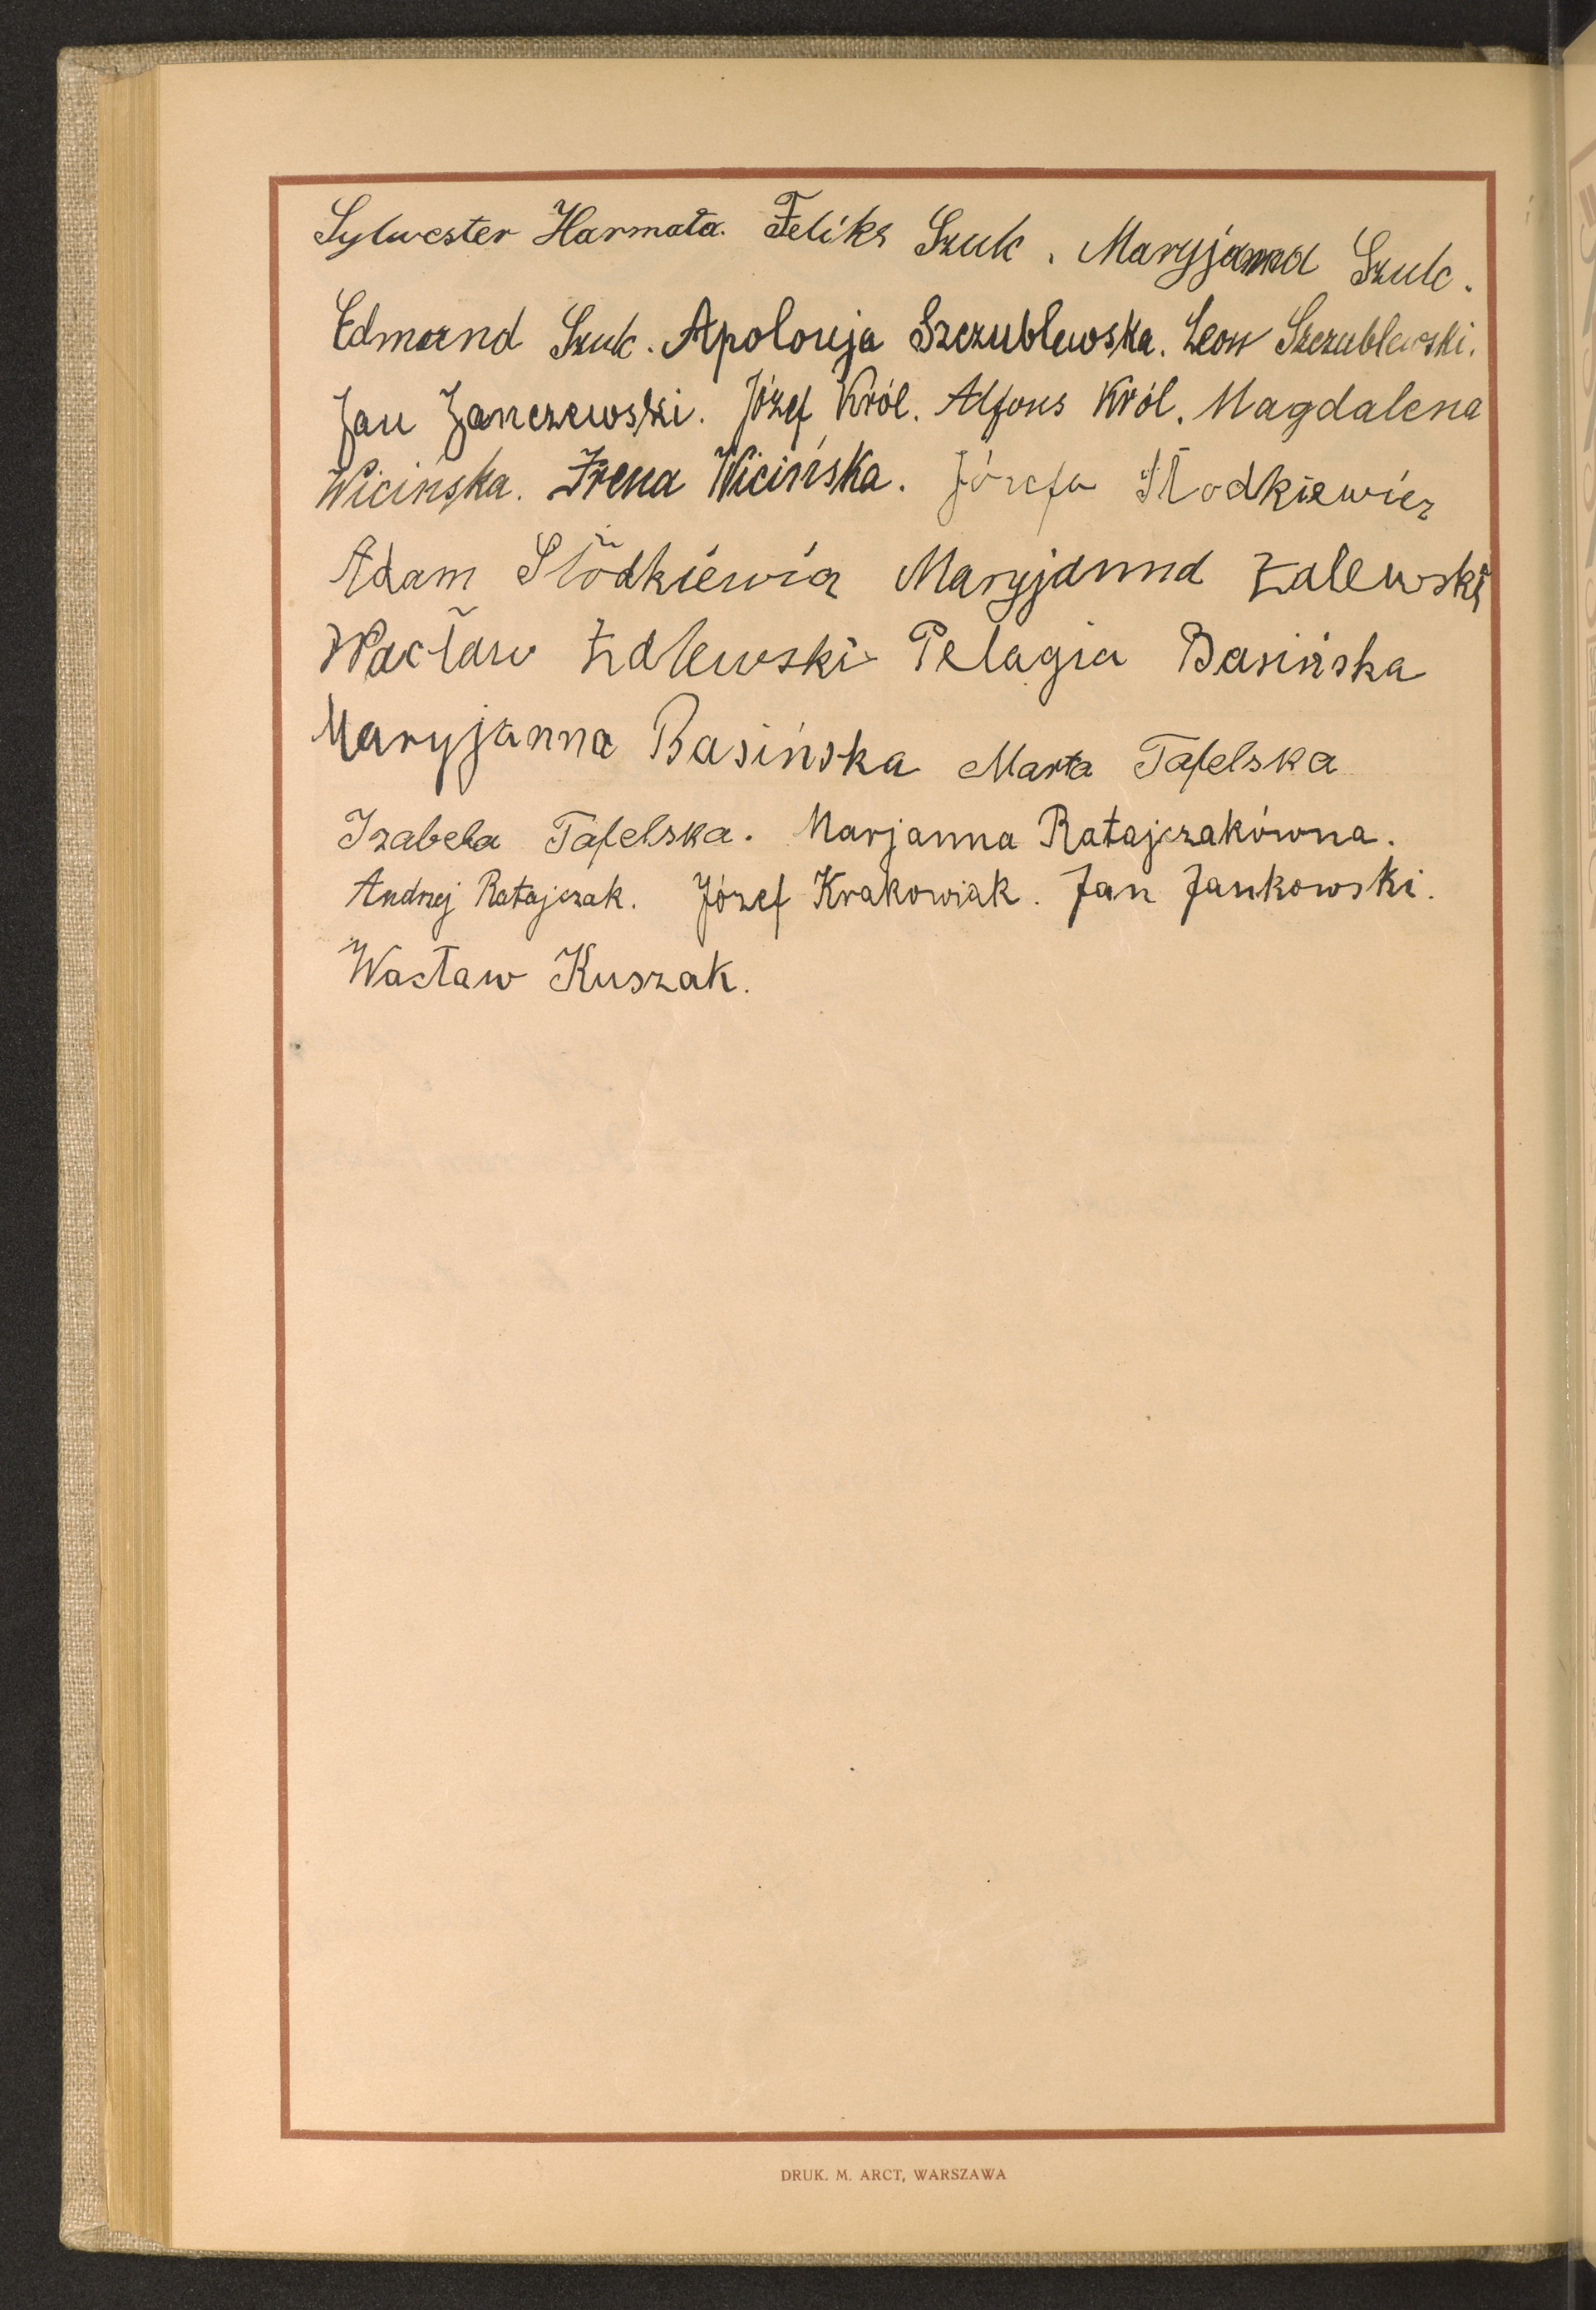 Sylwester Harmata. Feliks Szulc. Maryjanna Szulc.
Edmund Szulc. Apolonja Szczublewska. Leon Szczublewski.
Jan Janczewski. Józef Król. Alfons Król. Magdalena
Wicińska. Irena Wicińska. Józefa Słodkiewicz
Adam Słodkiewicz Maryjanna Zalewski
Wacław Zalewski Pelagia Basińska
Maryjanna Basińska Marta Tafelska
Izabela Tafelska. Marjanna Ratajczakówna.
Andrzej Ratajczak. Józef Krakowiak. Jan Jankowski.
Wacław Kuszak.
DRUK. M. ARCT, WARSZAWA